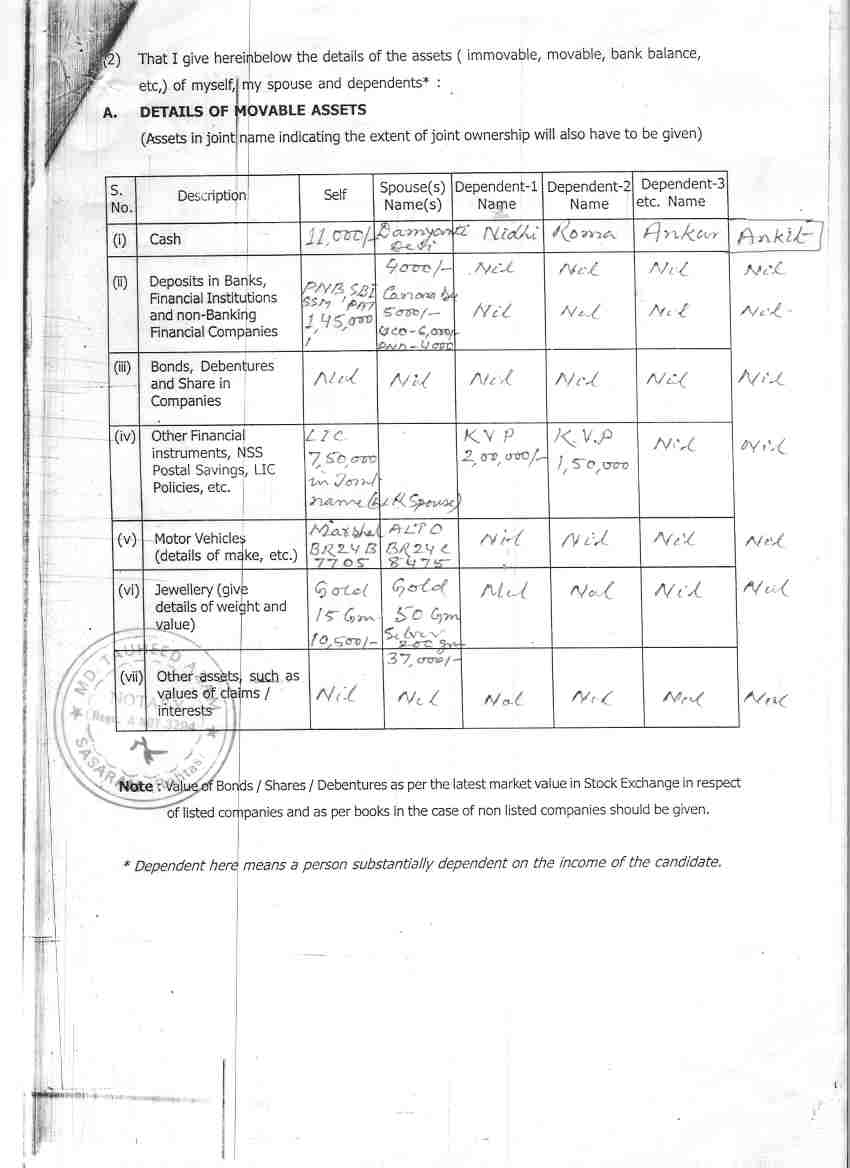 (2) That I give hereinbelow the details of the assets ( immovable, movable, bank balance,
etc,) of myself, my spouse and dependents* :
A. DETAILS OF MOVABLE ASSETS
(Assets in joint name indicating the extent of joint ownership will also have to be given)
S. No. Description Self Spouse(s) Name(s) Dependent-1 Name Dependent-2 Name Dependent-3 etc. Name
(i) Cash 11,000/- Damyanti Devi Nidhi Roma Ankur Ankit
4000/- Nil Nil Nil Nil
(ii) Deposits in Banks,
Financial Institutions
and non-Banking
Financial Companies
PNB SBI
SSM
1,45,000
Canara
5000/-
UCO-6,000/-
PNB-4000
Nil Nil Nil Nil
(iii) Bonds, Debentures
and Share in
Companies
Nil Nil Nil Nil Nil Nil
(iv) Other Financial
instruments, NSS
Postal Savings, LIC
Policies, etc.
LIC
7,50,000
in Joint
name
Spouse)
KVP
2,00,000/-
K.V.P
1,50,000
Nil Nil
(v) Motor Vehicles
(details of make, etc.)
Marshal
BR24B
7705
ALTO
BR24C
8475
Nil Nil Nil Nil
(vi) Jewellery (give
details of weight and
value)
Gold
15 Gm
10,500/-
Gold
50 Gm
Silver
200 gm
37,000/-
Nil Nil Nil Nil
(vii) Other assets, such as
values of claims /
interests
Nil Nil Nil Nil Nil Nil
MD. TAUHEED
NOTARY
SASARAM Rohtas
Note : Value of Bonds / Shares / Debentures as per the latest market value in Stock Exchange in respect
of listed companies and as per books in the case of non listed companies should be given.
* Dependent here means a person substantially dependent on the income of the candidate.